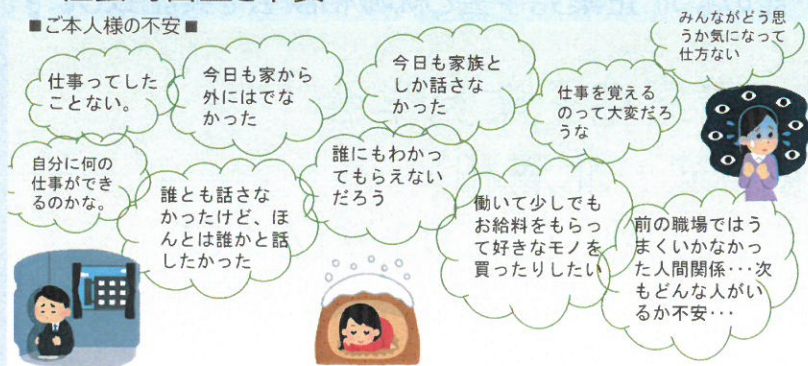 ■ご本人様の不安■
みんながどう思
うか気になって
仕方ない
仕事ってした
ことない。
今日も家から
外にはでな
かった
今日も家族と
しか話さな
かった
仕事を覚える
のって大変だろ
うな
自分に何の
仕事ができ
るのかな。
誰とも話さな
かったけど、ほ
んとは誰かと話
したかった
誰にもわかっ
てもらえない
だろう
働いて少しでも
お給料をもらっ
て好きなモノを
買ったりしたい
前の職場ではう
まくいかなかっ
た人間関係･･･次
もどんな人がい
るか不安･･･